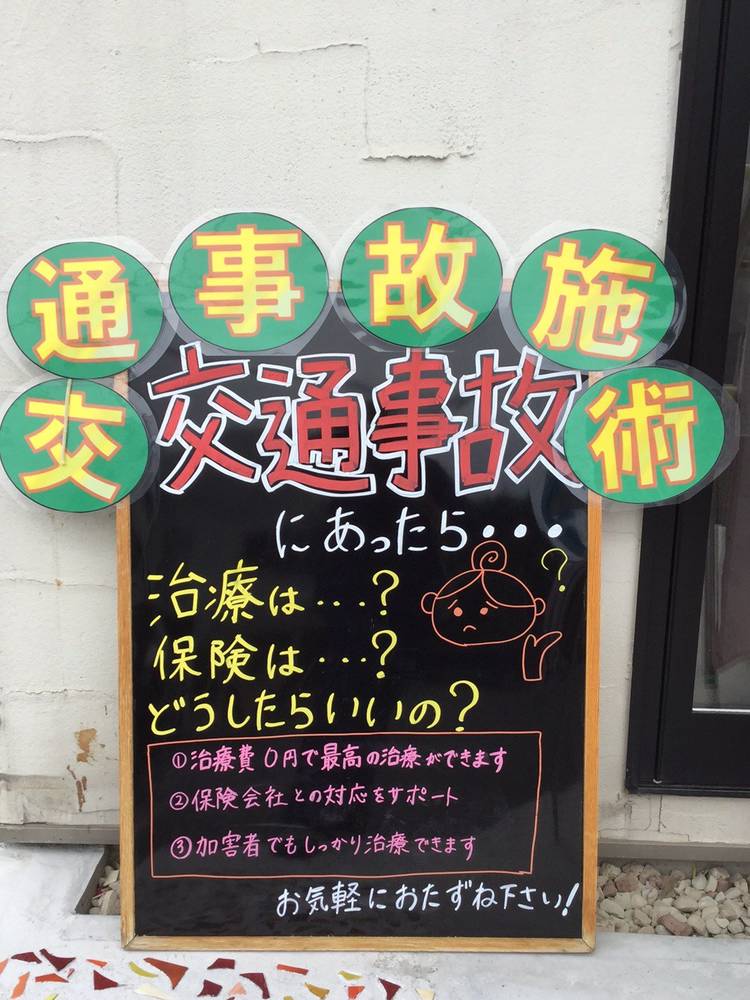 交通事故施術
交通事故
にあったら・・・
?
治療は…?
保険は…?
どうしたらいいの?
①治療費0円で最高の治療ができます
②保険会社との対応をサポート
③加害者でもしっかり治療できます
お気軽におたずね下さい!